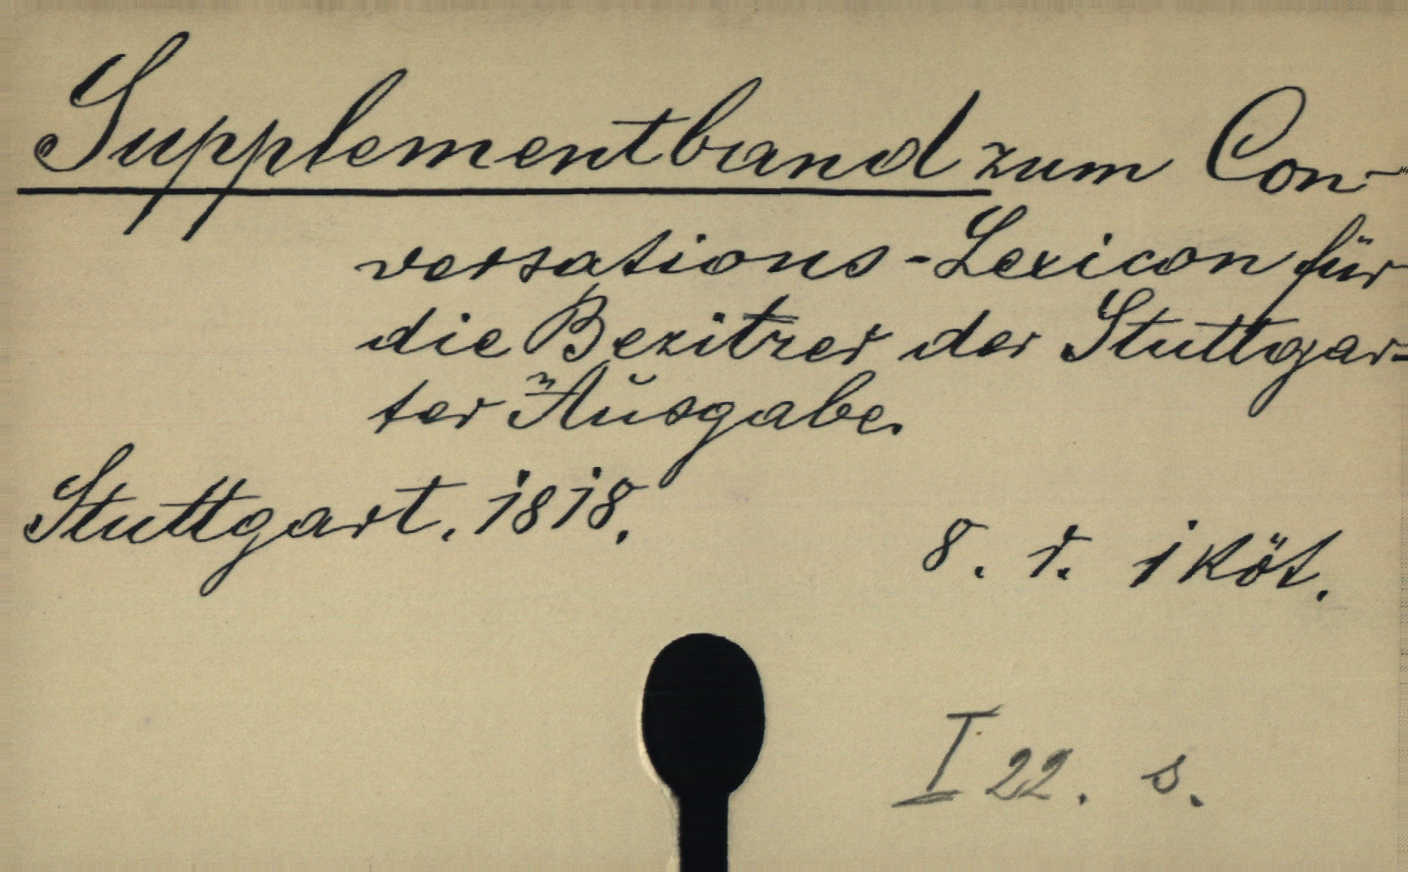 Supplementband zum Con-
versations-Lexicon für
die Bezitzer der Stuttgar-
ter Ausgabe.
Stuttgart. 1818.
8. r. 1 köt.
I 22. s.